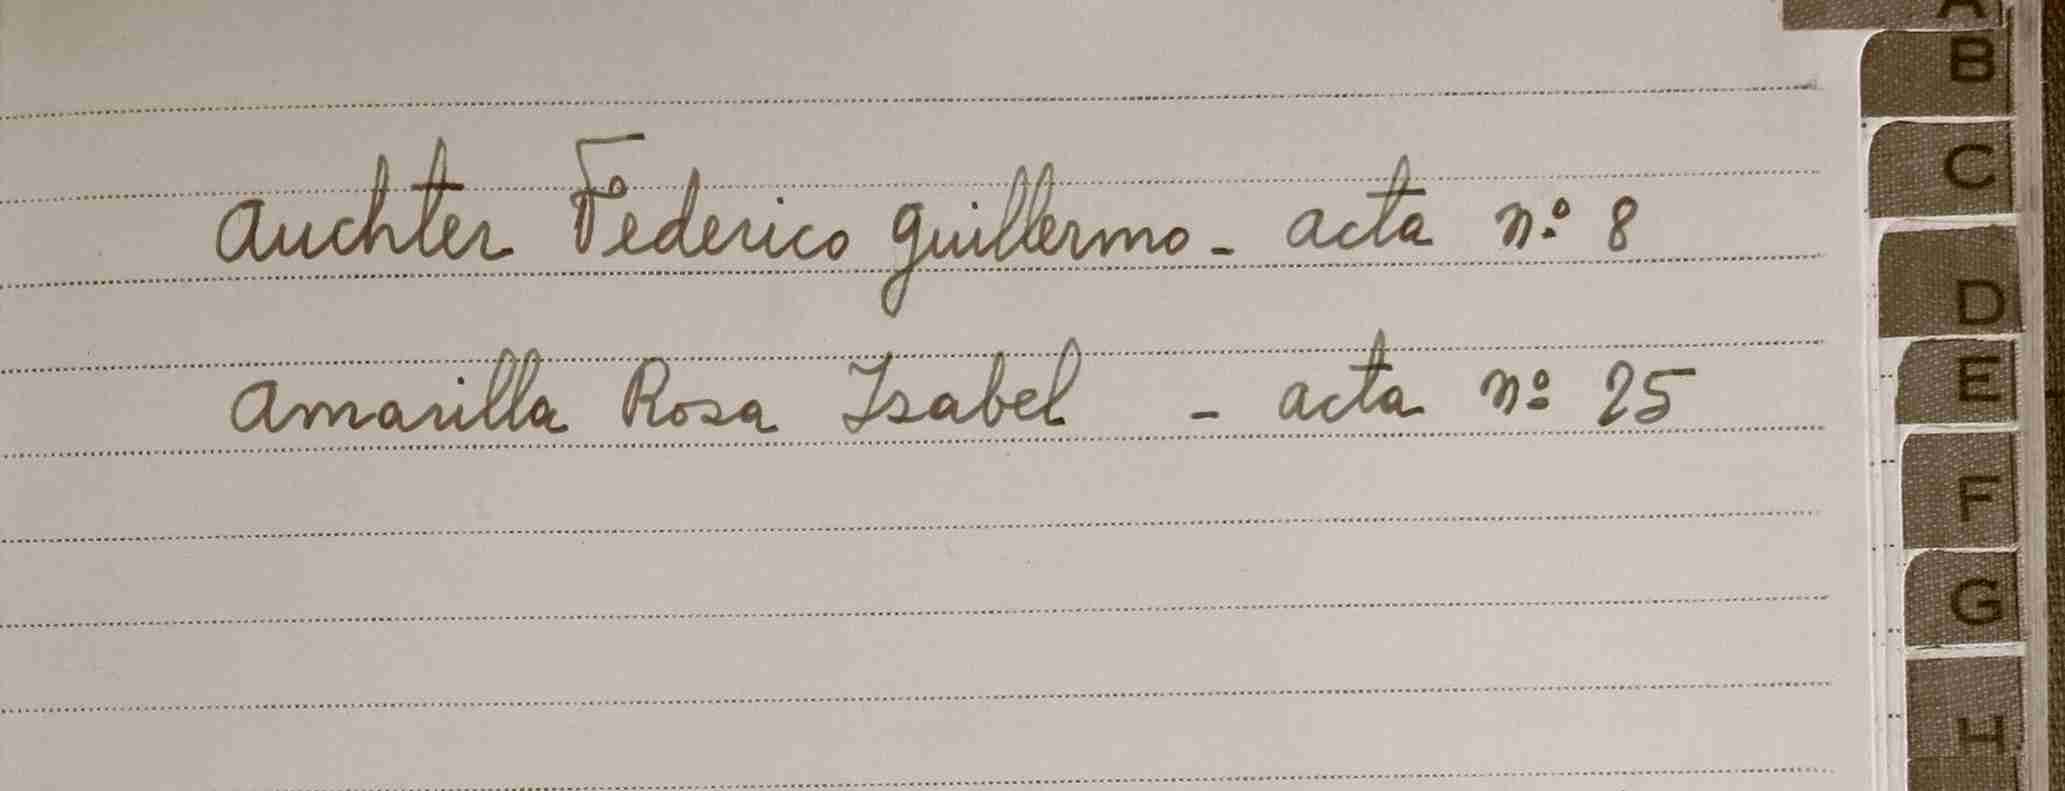 Auchter Federico Guillermo - acta nº 8
Amarilla Rosa Isabel - acta nº 25
A
B
C
D
E
F
G
H